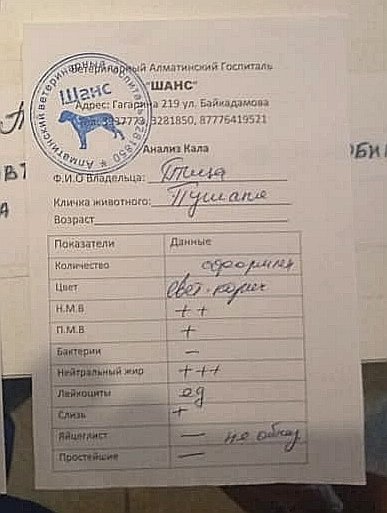 Ветеринарный Алматинский Госпиталь
"ШАНС"
Адрес: Гагарина 219 ул. Байкадамова
3281850, 87776419521
Алматинский ветеринарный госпиталь
Шанс
3281850
Анализ Кала
Ф.И.О Владельца: Птица
Кличка животного:
Возраст
Показатели Данные
Количество оформлен
Цвет свет-корич
Н.М.В ++
П.М.В +
Бактерии —
Нейтральный жир +++
Лейкоциты ед
Слизь +
Яйцеглист — не обнаж
Простейшие —